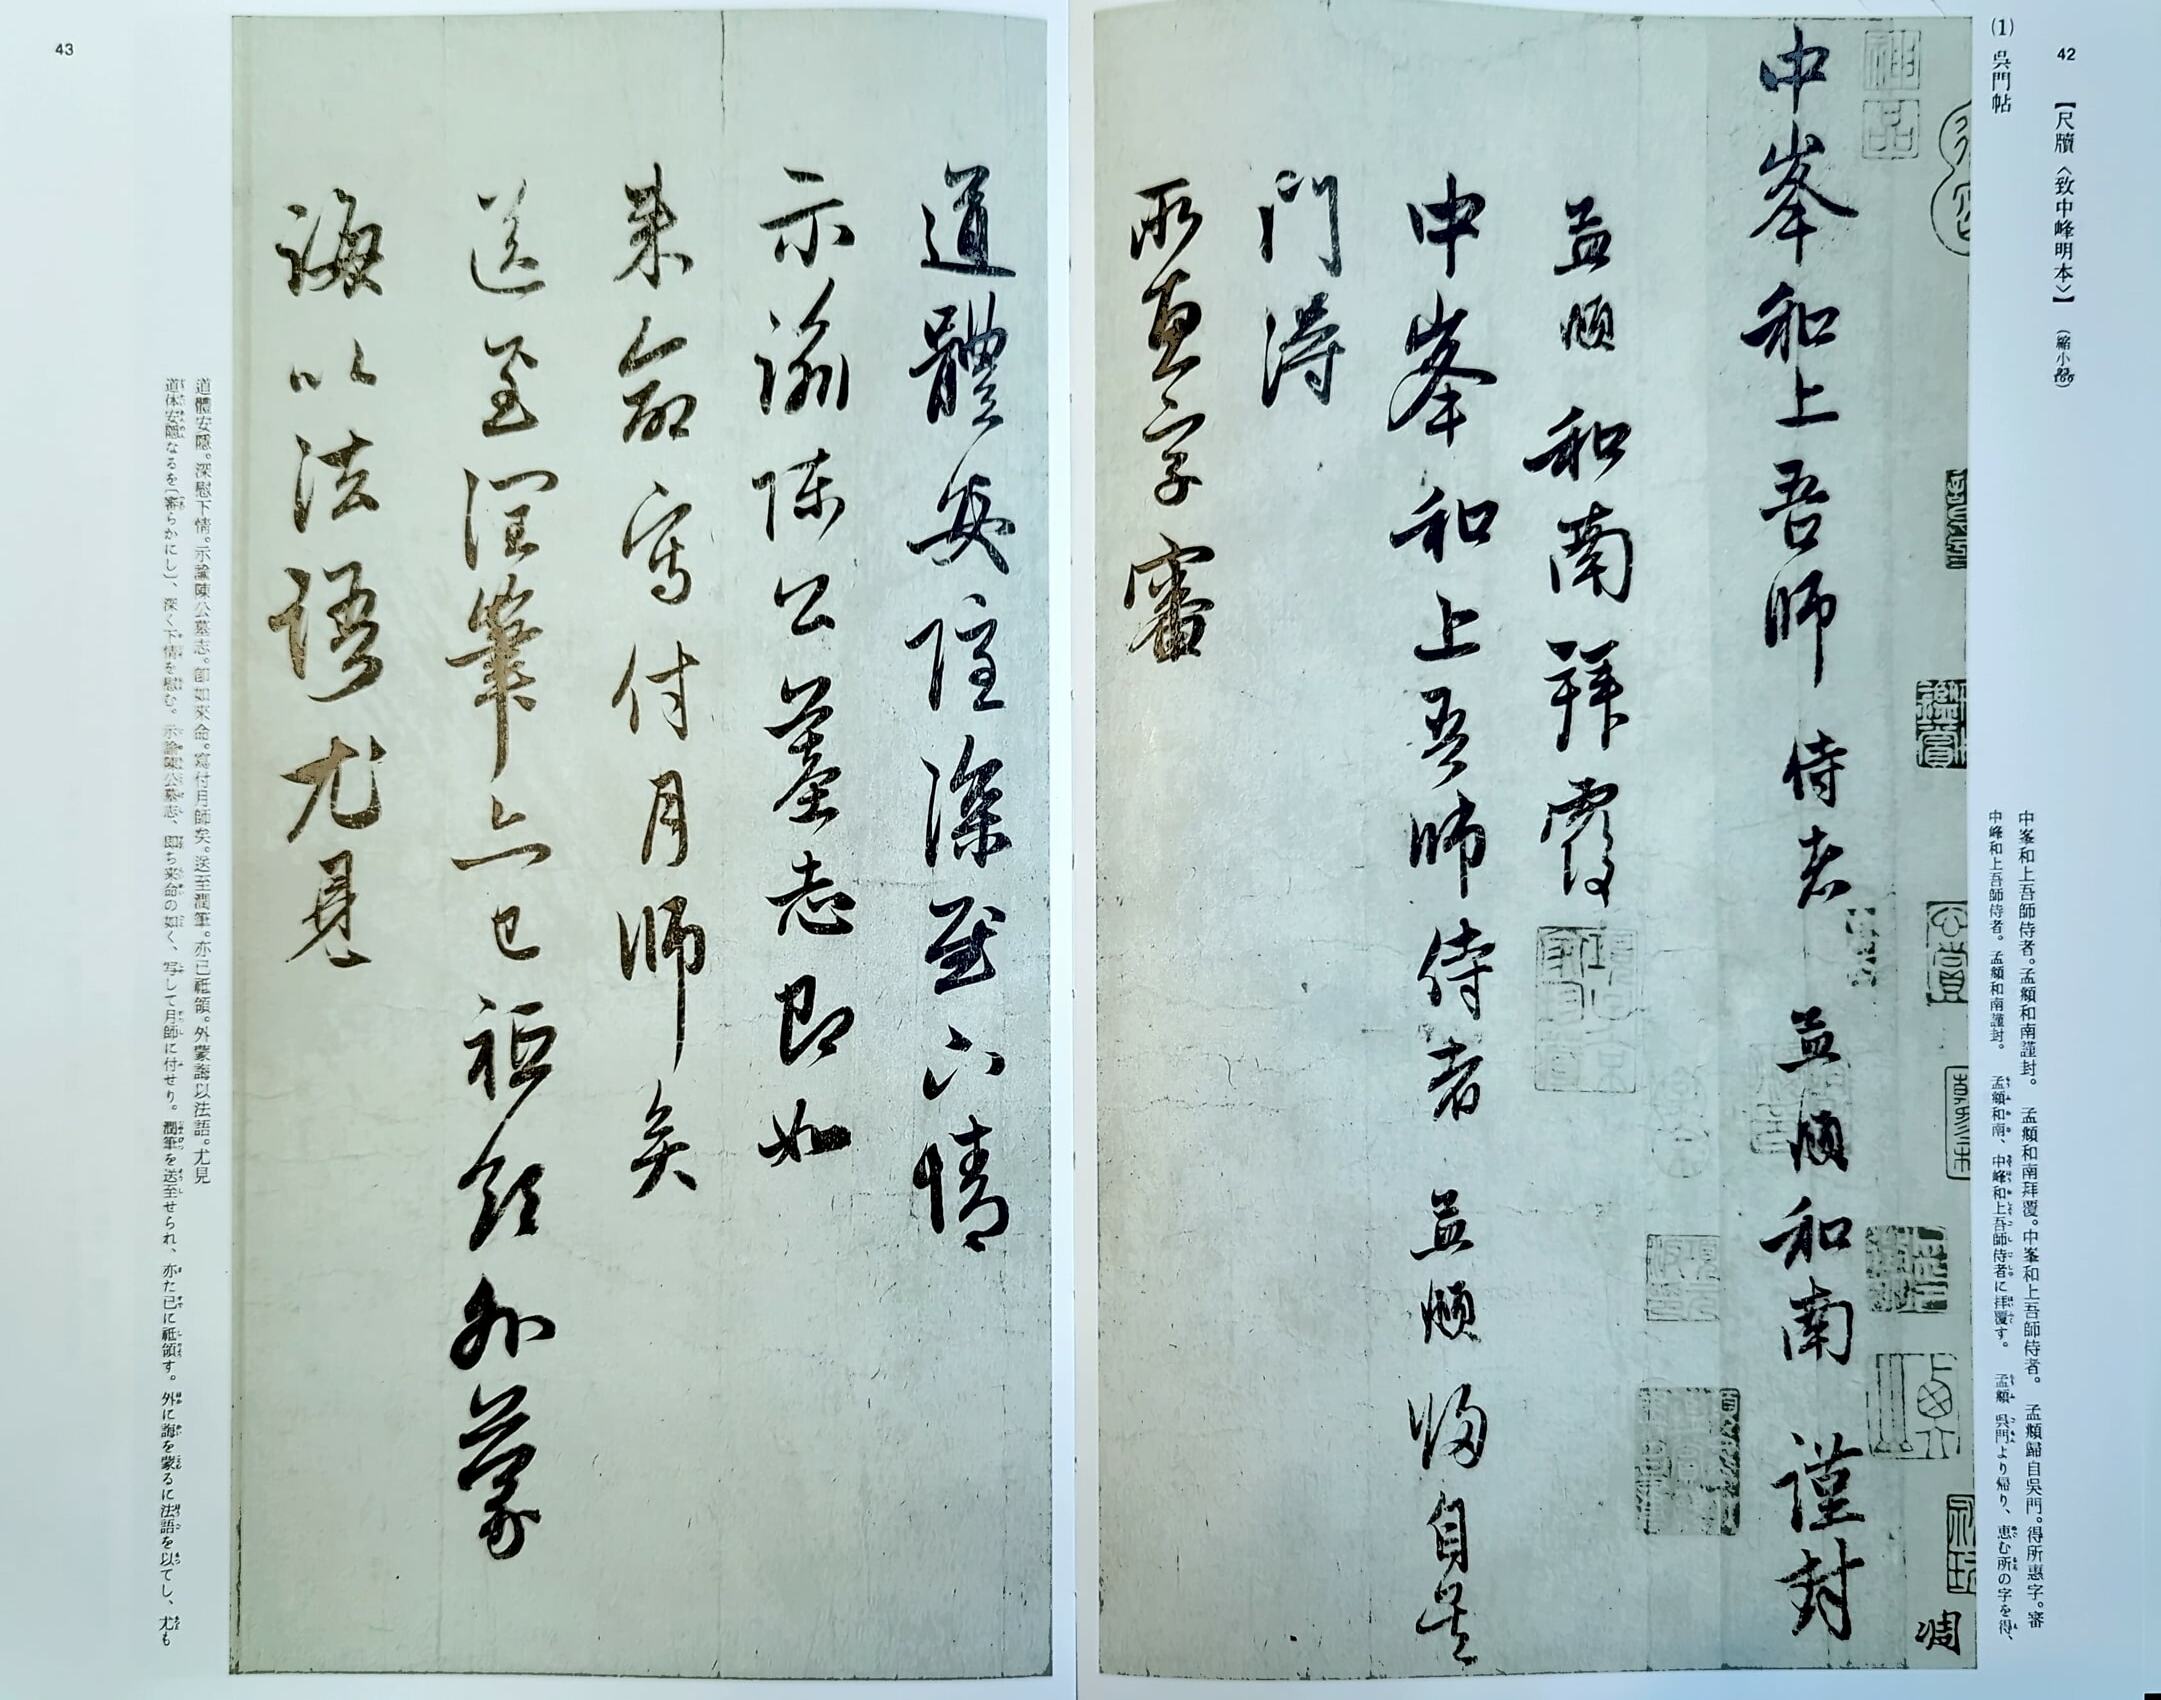 42
【尺牘〈致中峰明本〉】
(縮小85%)
(1) 吳門帖
中峯和上吾師侍者。孟頫和南謹封。 孟頫和南拜覆。中峯和上吾師侍者。 孟頫歸自吳門。得所惠字。審
中峰和上吾師侍者。孟頫和南謹封。 孟頫和南、中峰和上吾師侍者に拝覆す。 孟頫 呉門より帰り、恵む所の字を得、
神品
中峯和上吾師侍者 孟頫和南 謹封
孟頫和南拜覆
中峯和上吾師侍者 孟頫歸自吳
門得
所惠字審
道體安隱深慰下情
示諭陳公墓志即如
來命寫付月師矣
送至潤筆亦已祗領外蒙
誨以法語尤見
道體安隱。深慰下情。示諭陳公墓志。即如來命。寫付月師矣。送至潤筆。亦已祗領。外蒙誨以法語。尤見
道体安隠なるを〔審らかにし〕、深く下情を慰む。示諭陳公墓志、即ち来命の如く、写して月師に付せり。潤筆を送至せられ、亦た已に祗領す。外に誨を蒙るに法語を以てし、尤も
43